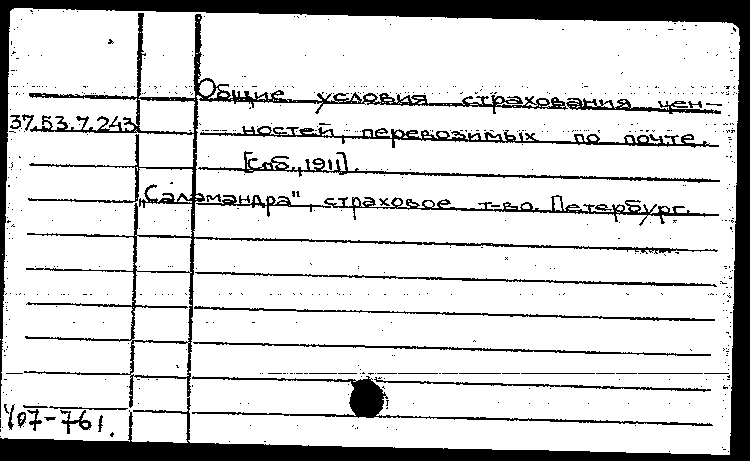 Общие условия страхования цен-
37.53.7.243
ностей, перевозимых по почте.
[Спб., 1911].
„Саламандра", страховое т-во. Петербург.
У07-761.